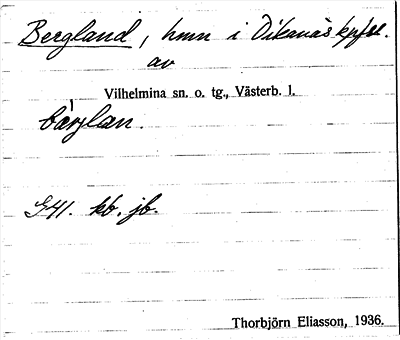 Bergland, hmn i Dikanäs kpfse.
av
Vilhelmina sn. o. tg., Västerb. l.
bärjlan.
G41. kb. jb.
Thorbjörn Eliasson, 1936.